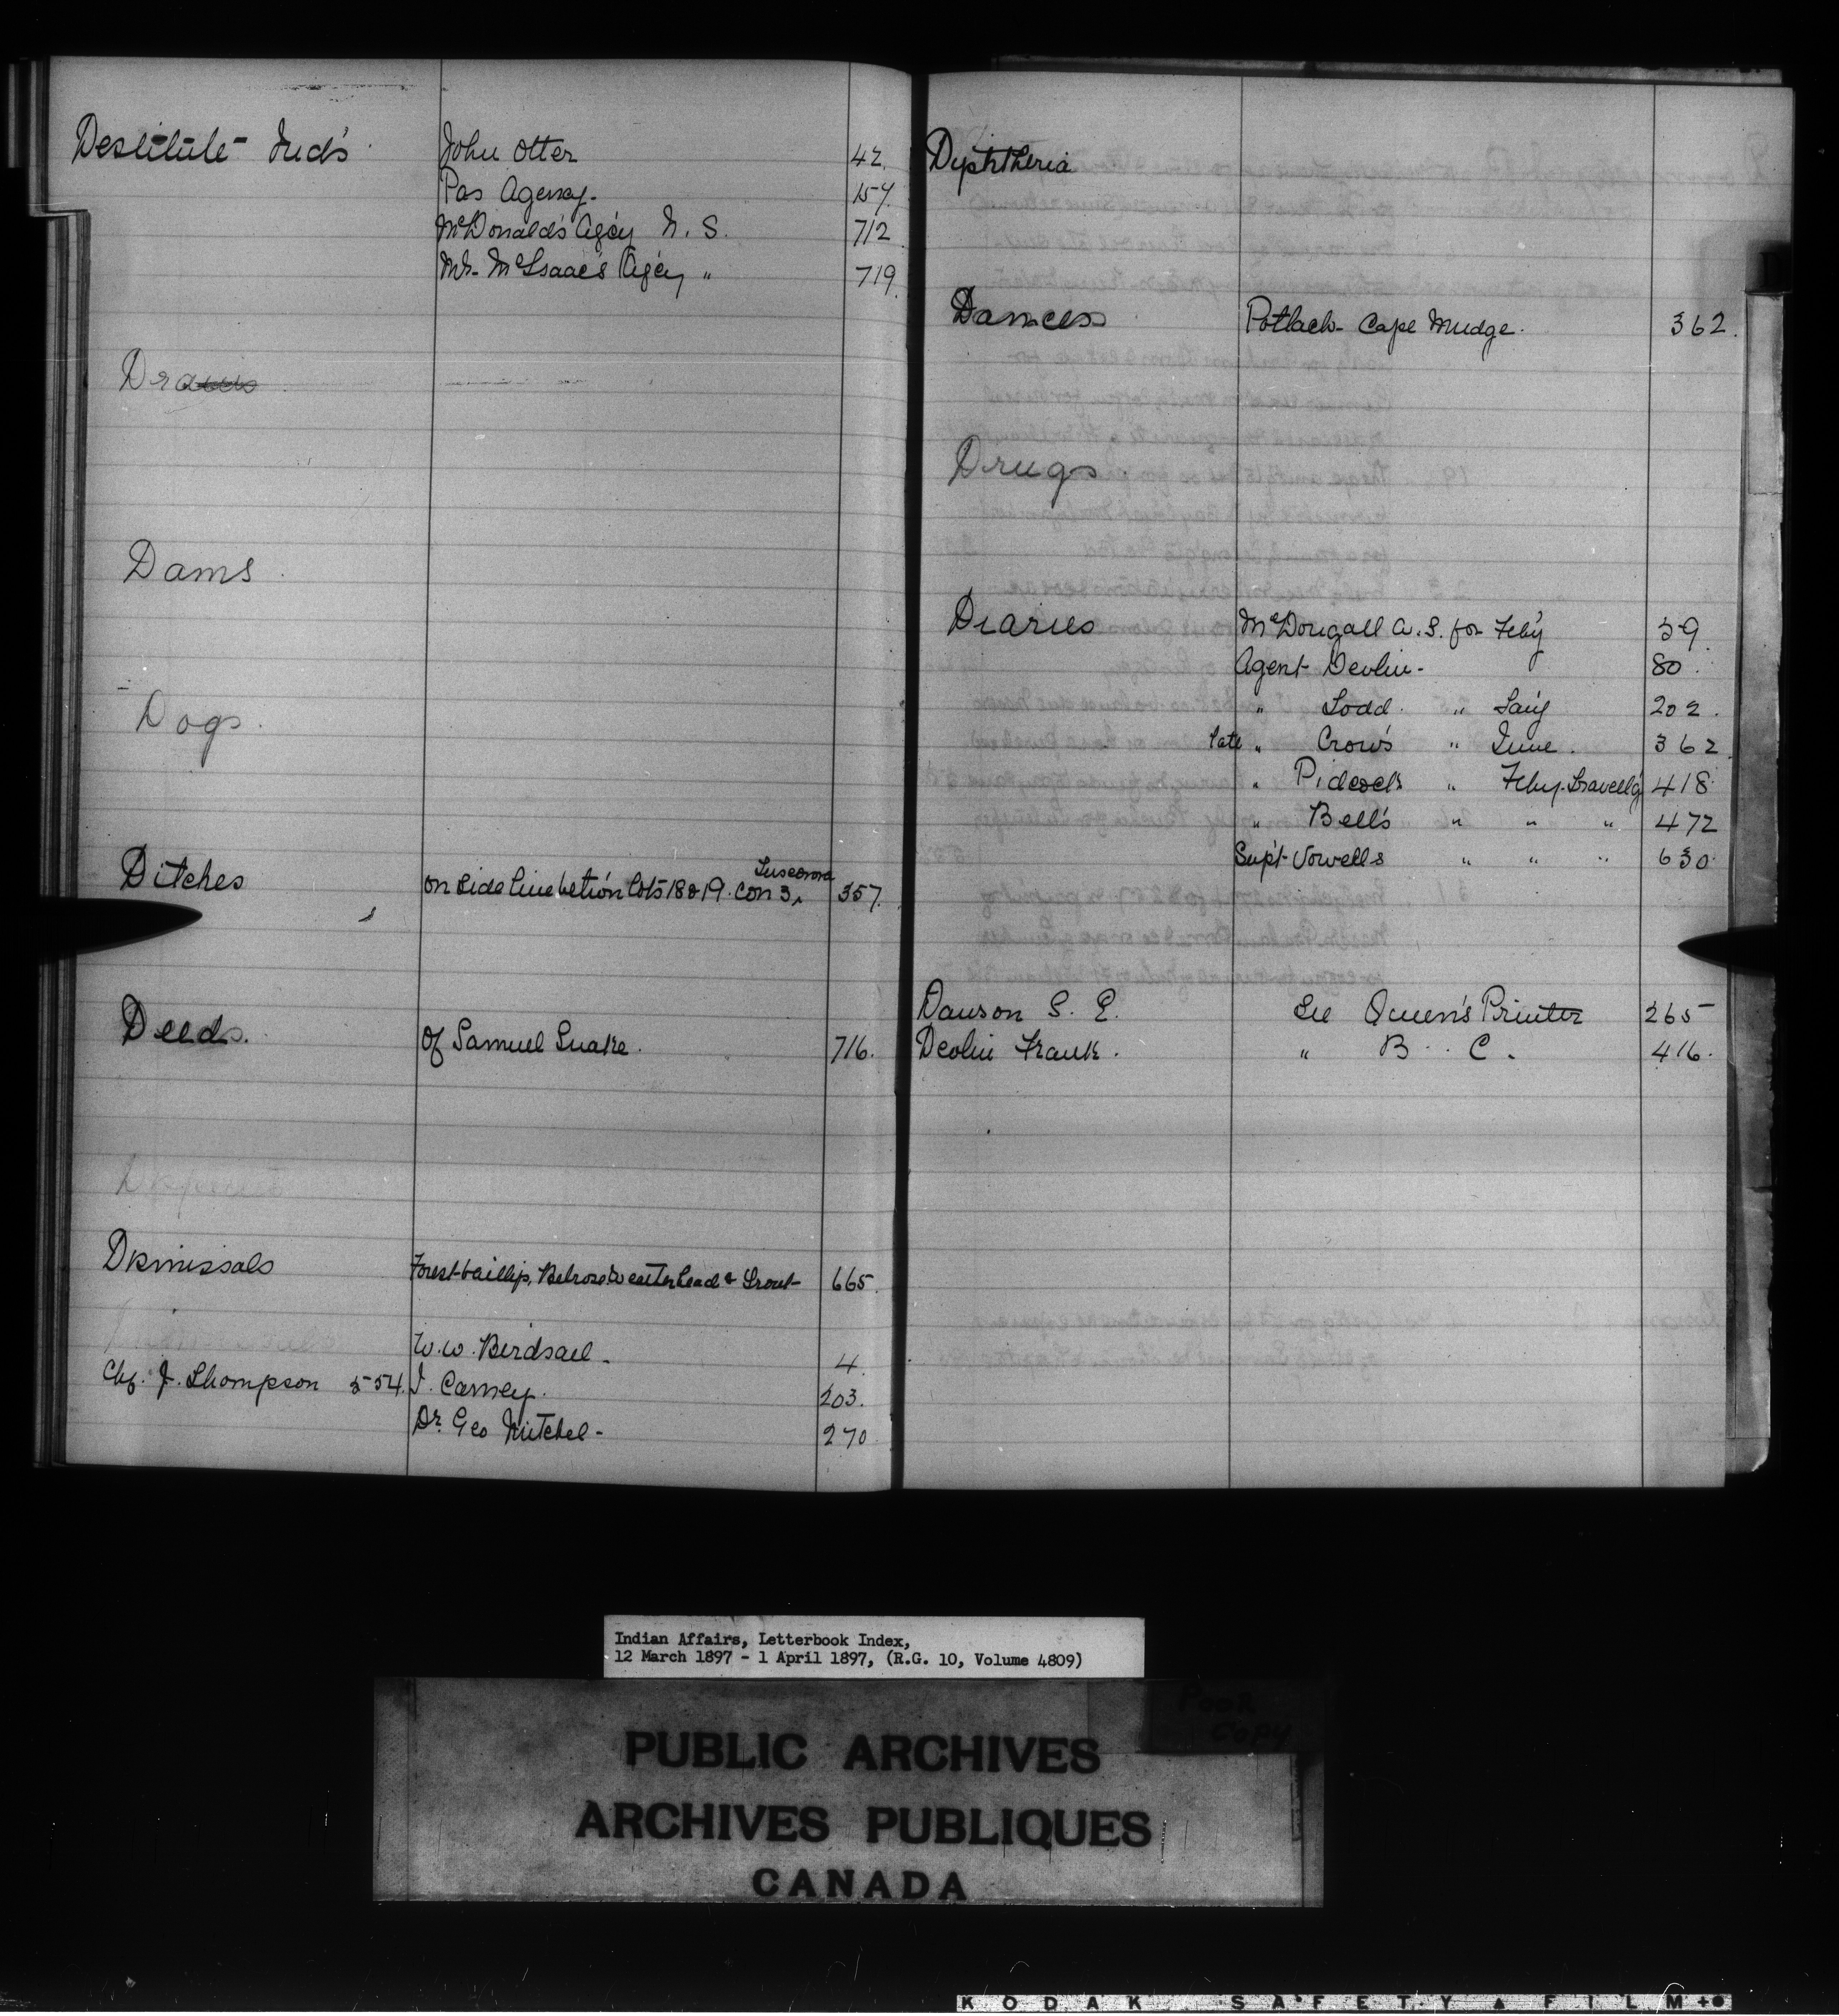 Destitute Ind's John Otter 42.
Pas Agency. 157.
McDonald's Ag'cy N. S. 712
Mr. McIsaac's Ag'cy " 719.
Dams
Dogs.
Ditches on side line betw'n lots 18 & 19. Con 3, Tuscarora 357.
Deeds. Of Samuel Snake. 716.
Dismissals Forest-bailiffs, Belrose Weatherhead & Trout 665.
W. W. Birdsall. 4.
Chf. J. Thompson 554. J. Carney. 203.
Dr. Geo Mitchel. 270
Diphtheria
Dances Potlach Cape Mudge. 362.
Drugs
Diaries McDougall A. S. for Feby 39.
Agent Devlin. 80.
" Todd. " Jan'y 202.
late " Crow's " June. 362
" Pidcock's " Feby. Travell'g 418
" Bell's " " " 472
Sup't Vowells " " " 630.
Dawson S. E. See Queen's Printer 265
Devlin Frank. " B. C. 416.
Indian Affairs, Letterbook Index,
12 March 1897 - 1 April 1897, (R.G. 10, Volume 4809)
POOR
COPY
PUBLIC ARCHIVES
ARCHIVES PUBLIQUES
CANADA
KODAK SAFETY FILM